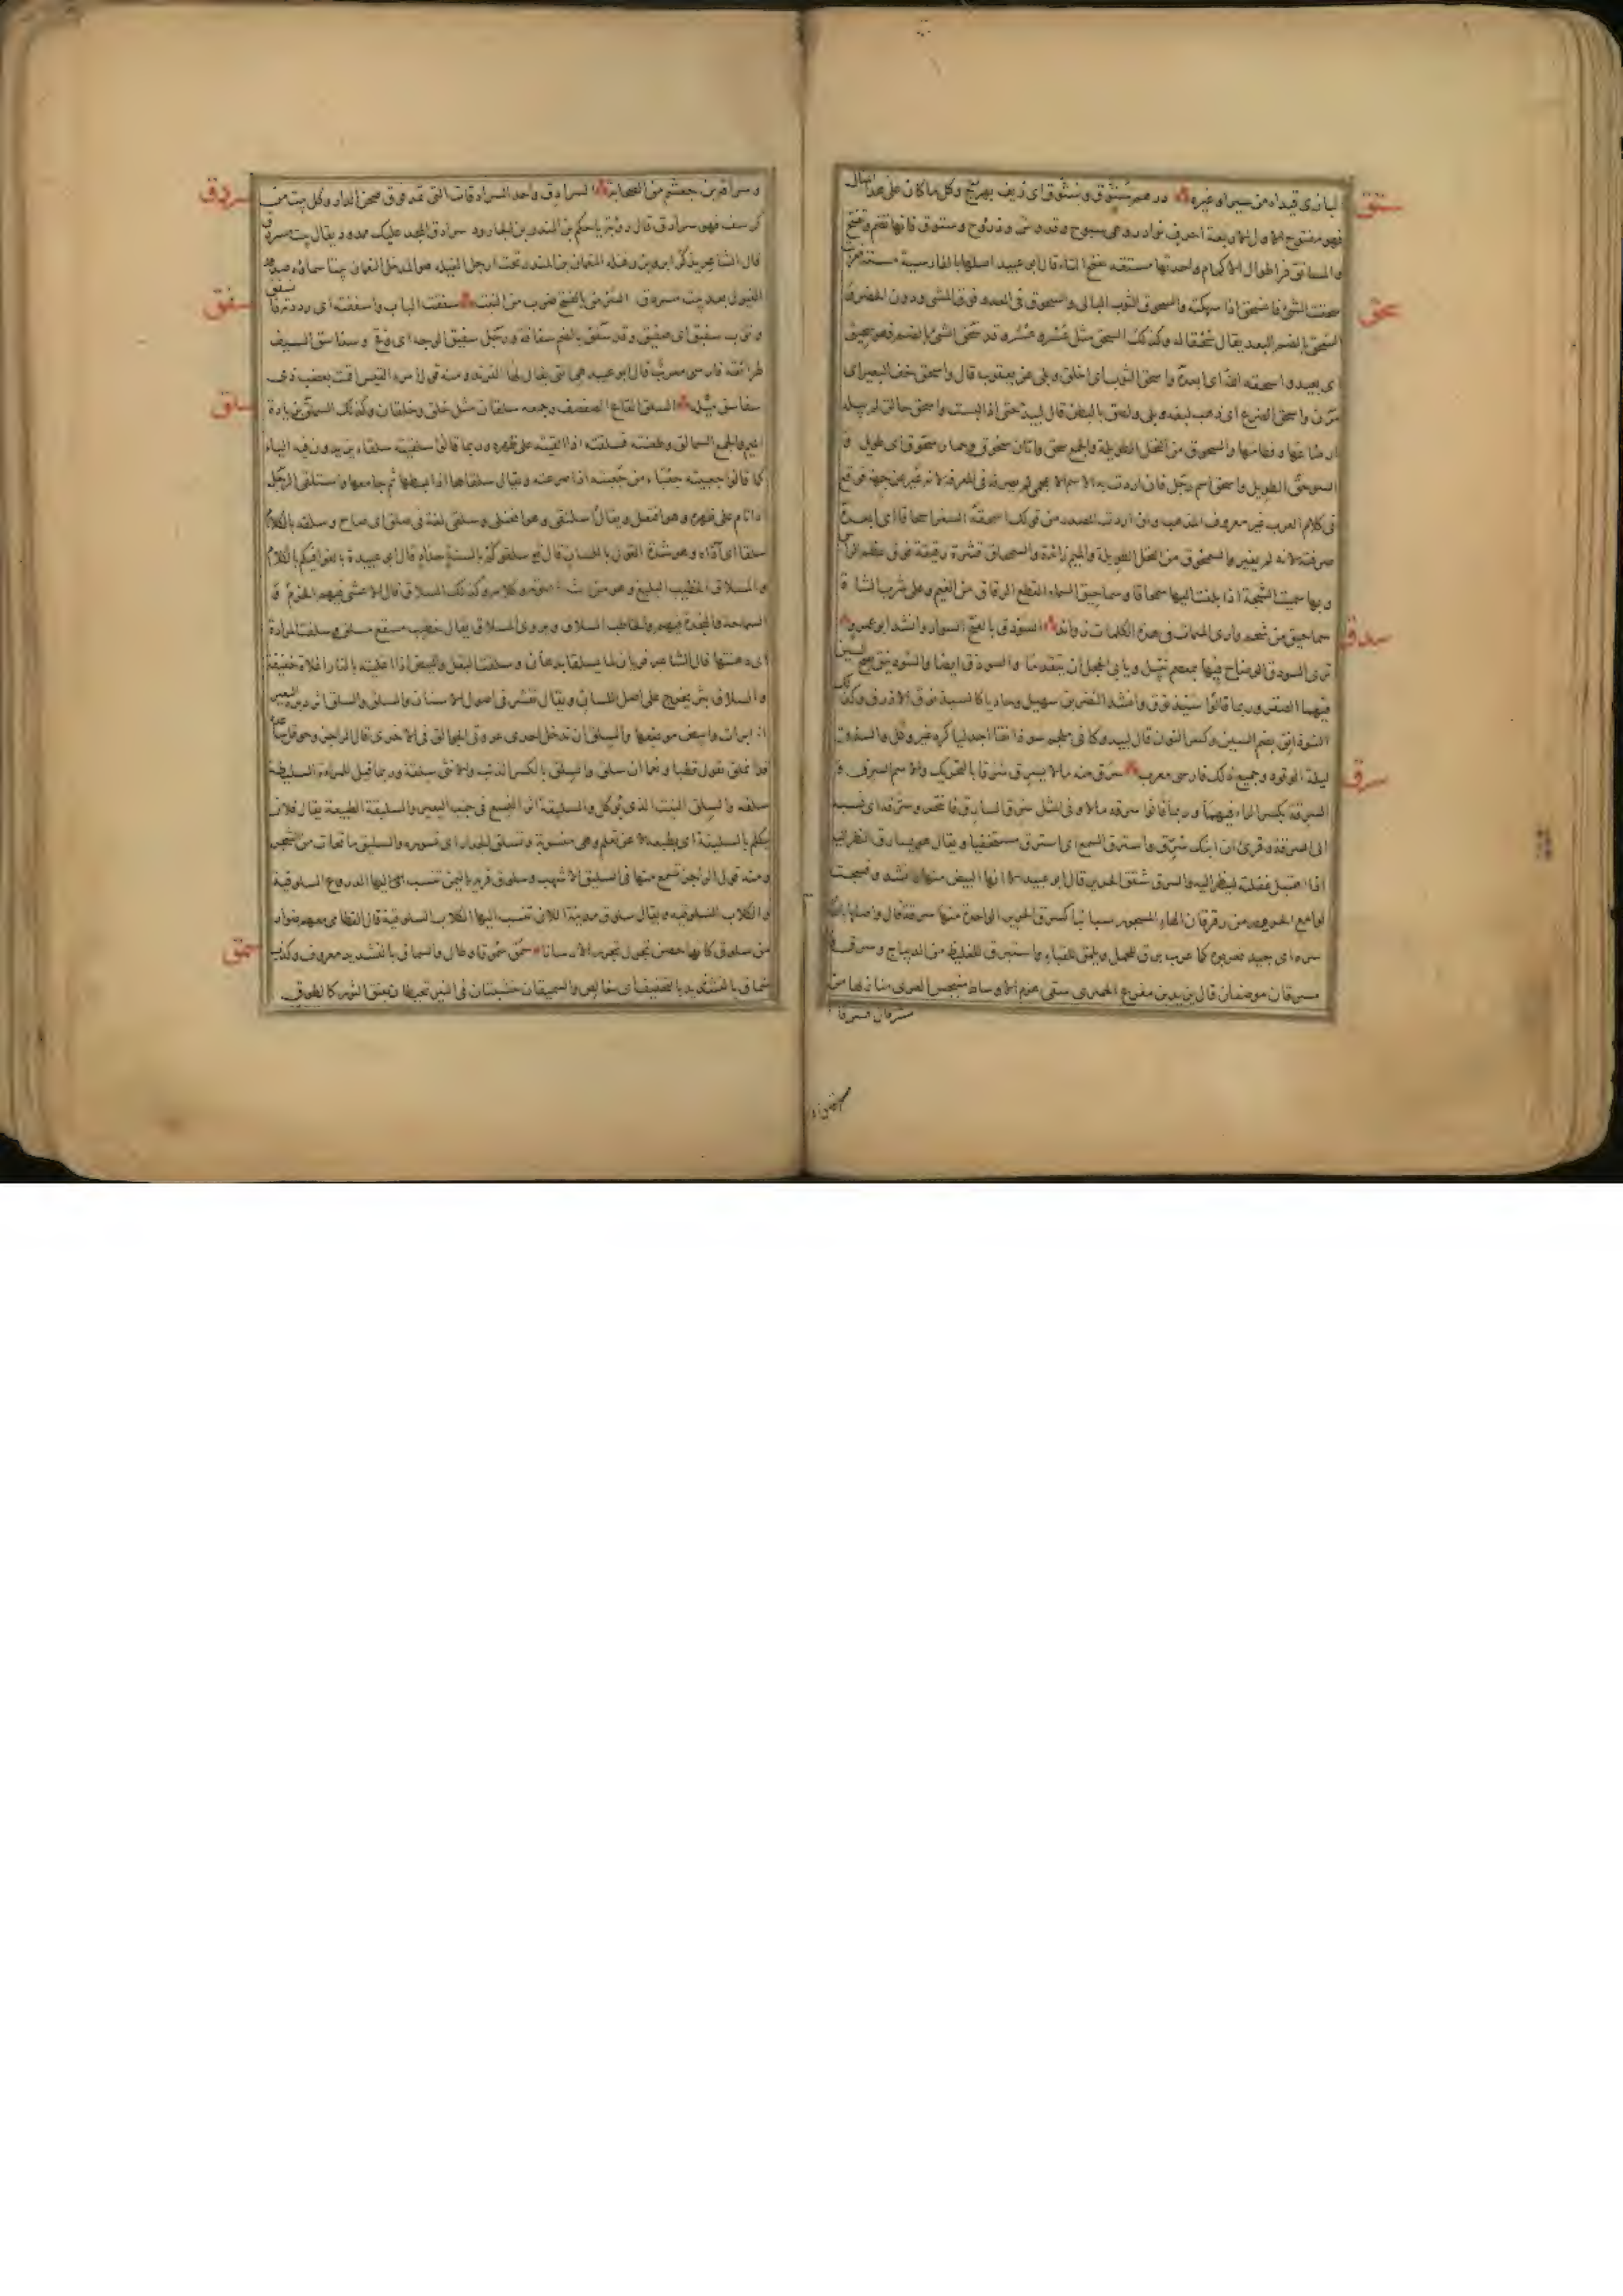 ستق
درهم ستوق وستوق اى زيف بهرج وكل ما كان على هذا المثال
فهو مفتوح الاول الا اربعة احرف نوادر وهى سبوح وقدوس وذروح وستوق فانها تضم وتفتح
والمساتق فرا طوال الاكمام واحدتها مستقه بفتح التاء قال ابو عبيد اصلها بالفارسية مشته فعربت
سحق
سحقت الشئ فانسحق اذا سهكته والسحق الثوب البالى والسحق فى العدو فوق المشى ودون الحضر
السحق بالضم البعد يقال سحقا له وكذلك السحق مثل عسر وعسر وقد سحق الشئ بالضم فهو سحيق
اى بعيد واسحقه الله اى ابعده واسحق الثوب اى اخلق وبلى عن يعقوب قال واسحق خف البعير اى
مرن واسحق الضرع اى ذهب لبنه وبلى ولصق بالبطن قال لبيد حتى اذا يبست واسحق حالق لم يبله
ارضاعها وفطامها والسحوق من النخل الطويلة والجمع سحق واتان سحوق وحمار سحوق اى طويل
السوحق الطويل واسحق اسم رجل فان اردت به الاسم الاعجمى لم تصرفه فى المعرفة لانه غير عن جهته فوقع
فى كلام العرب غير معروف المذهب وان اردت المصدر من قولك اسحقه السفر اسحاقا اى ابعده
صرفته لانه لم يغير والسمحوق من النخل الطويلة والميم زائدة والسمحاق قشرة رقيقة فوق عظم الراس
وبها سميت الشجة اذا بلغت اليها سمحاقا وسماحيق السماء القطع الرقاق من الغيم وعلى ثرب الشاة
سماحيق من شحم وارى الميمات فى هذه الكلمات زوائد
سدق
السوذق بالفتح السوار وانشد ابو عمرو
ترى السوذق الوضاح فيها بمعصم نبيل ويابى الحجل ان يتقدما والسوذق ايضا والسوذنيق بفتح السين
فيهما الصقر وربما قالوا سيذنوق وانشد النضر بن شميل وحاديا كالسيذنوق الازرق وكذلك
السوذانق بضم السين وكسر النون قال لبيد وكانى ملجم سوذانقا اجدليا كره غير وكل والسذق
ليلة الوقود وجميع ذلك فارسى معرب
سرق
سرق منه مالا يسرق سرقا بالتحريك والاسم السرق و
السرقة بكسر الراء فيهما وربما قالوا سرقه مالا وفى المثل سرق السارق فانتحر وسرقه اى نسبه
الى السرقة وقرئ ان ابنك سرق واسترق السمع اى استرق مستخفيا ويقال هو يسارق النظر اليه
اذا اهتبل غفلته لينظر اليه والسرق شقق الحرير قال ابو عبيد الا انها البيض منها وانشد ونسجت
لوامع الحرور من رقرقان الهاء المسجور سبائبا كسرق الحرير الواحدة منها سرقة قال واصلها بالفارسية
سره اى جيد فعربوه كما عرب برق للحمل ويلمق للقباء واستبرق للغليظ من الديباج و
مسرقان موضع قال يزيد بن مفرغ الحميرى سقى هزم الاوساط منبجس العرى منازلها من
مسرقان فسرقا
وسراقة بن جعشم من الصحابة
سردق
السرادق واحد السرادقات التى تمد فوق صحن الدار وكل بيت من
كرسف فهو سرادق قال روبة يا حكم بن المنذر بن الجارود سرادق المجد عليك ممدود يقال بيت مسردق
قال الشاعر يذكر ابرويز وقتله النعمان بن المنذر تحت ارجل الفيله هو المدخل النعمان بيتا سماؤه صدور
الفيول بعد بيت مسردق
سفق
سفقت الباب واسفقته اى رددته فانسفق
وثوب سفيق اى صفيق وقد سفق بالضم سفاقة ورجل سفيق الوجه اى وقح وسفاسق السيف
طرائقه فارسى معرب قال ابو عبيد هى التى يقال لها الفرند ومنه قول امرء القيس اقمت بعضب ذى
سفاسق ميله
سلق
السلق القاع الصفصف وجمعه سلقان مثل خلق وخلقان وكذلك السملق بزيادة
الميم والجمع السمالق وطعنته فسلقته اذا القيته على ظهره وربما قالوا سلقيته سلقاء يزيدون فيه الياء
كما قالوا جعبيته جعباء من جعبته اذا صرعته ويقال سلقاها اذا بسطها ثم جامعها واستلقى الرجل
اذا نام على ظهره وهو افتعل ويقال اسلنقى وهو افعنلى وسلق لغة فى صلق اى صاح وسلقه بالكلام
سلقا اى آذاه وهو شدة القول باللسان قال تع سلقوكم بالسنة حداد قال ابو عبيدة بالغوا فيكم بالكلام
والمسلاق الخطيب البليغ وهو من شدة صوته وكلامه وكذلك السلاق قال الاعشى فيهم الحزم و
السماحة والنجدة فيهم والخاطب السلاق ويروى المسلاق يقال خطيب مسقع مسلق وسلقت المزادة
اى دهنتها قال الشاعر فريان لما يسلقا بدهان وسلقت البقل والبيض اذا اغليته بالنار اغلاءة خفيفة
والسلاق بثر يخرج على اصل اللسان ويقال تقشر فى اصول الاسنان والسلق والسلق اثر دبرة البعير
اذا برات وابيض موضعها والسلق ان تدخل احدى عروتى الجوالق فى الاخرى قال الراجز وحوقل ساعده
قد انملق يقول قطبا ونعما ان سلق والسلق بالكسر الذئب والانثى سلقة وربما قيل للمراءة السليطة
سلقه والسلق النبت الذى يوكل والسليقة اثر النسع فى جنب البعير والسليقة الطبيعة يقال فلان
يتكلم بالسليقة اى بطبعه لا عن تعلم وهى منسوبة وتسلق الجدار اى تسوره والسليق ما تحات من الشجر
ومنه قول الراجز تسمع منها فى السليق الاشهب وسلوق قرية باليمن تنسب اليها الدروع السلوقية
والكلاب السلوقيه ويقال سلوق مدينة اللان تنسب اليها الكلاب السلوقية قال القطامى معهم ضوار
من سلوق كانها حصن تجول تجرر الارسانا
سمق
سمق سموقا علا وطال والسماق بالتشديد معروف وكذب
سماق بالتخفيف اى خالص والسميقان خشبتان فى النير تحيطان بعنق الثور كالطوق